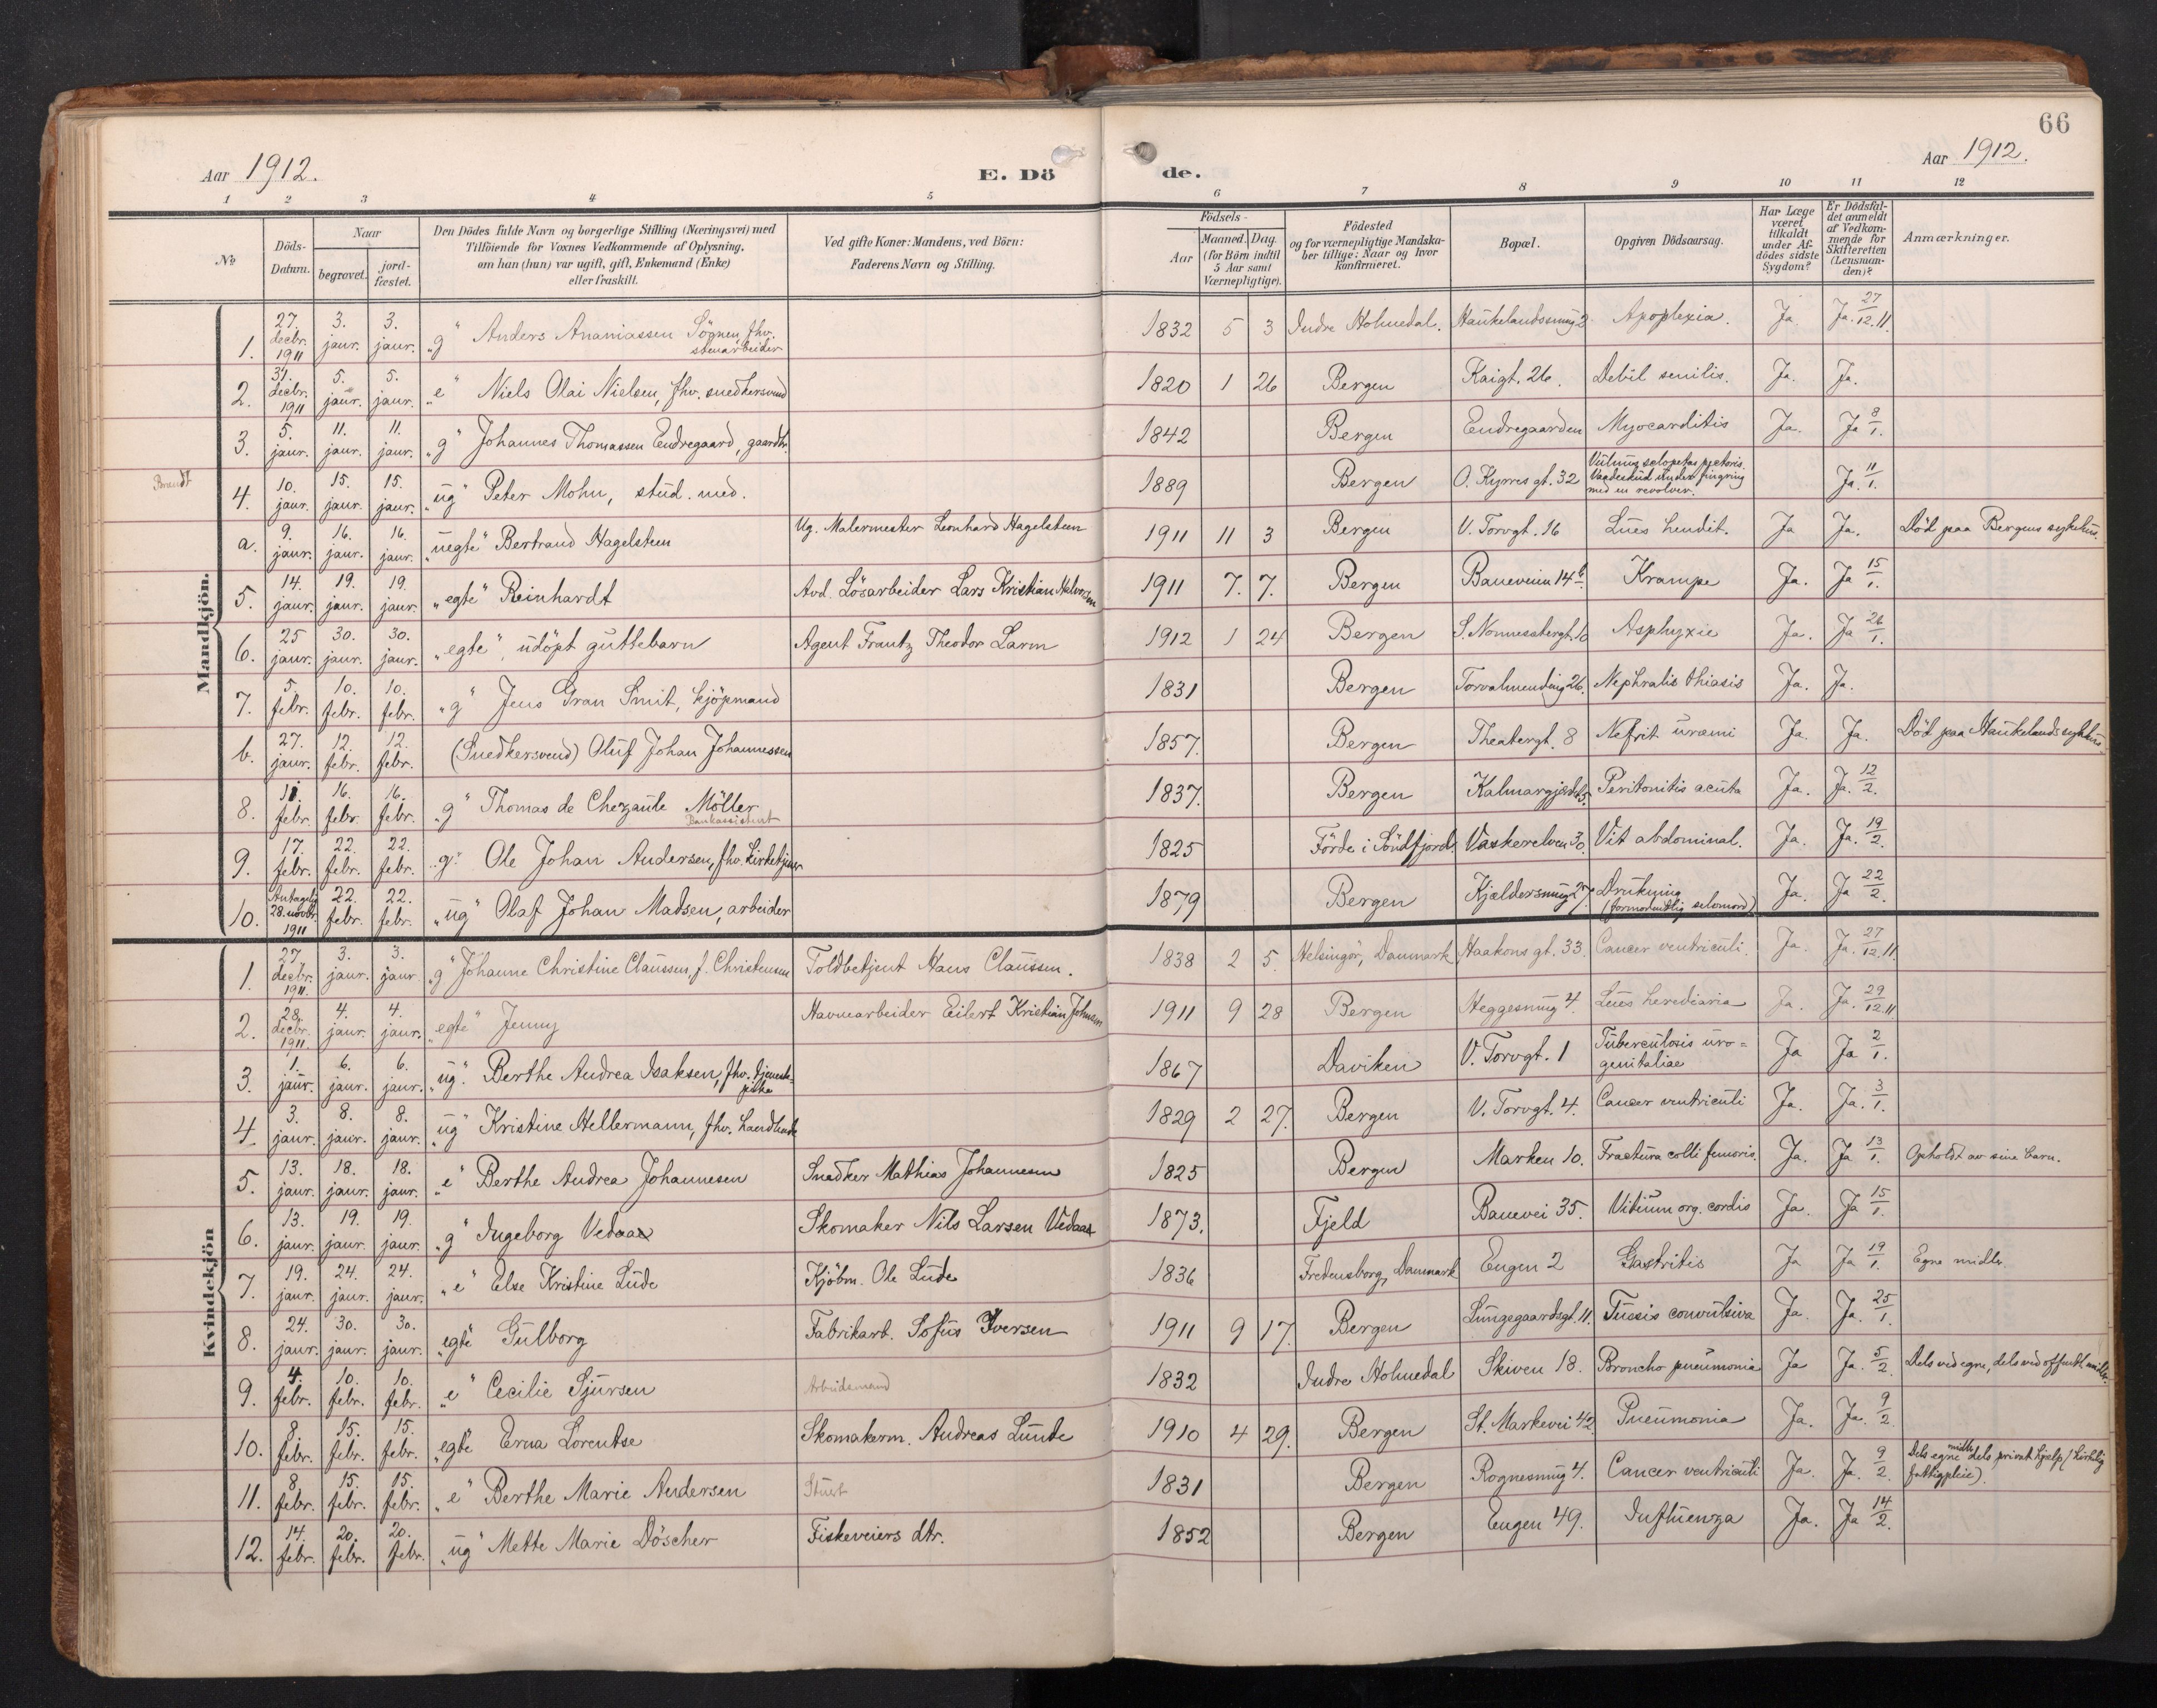 66
Aar 1912.
E. Dö
de.
Aar 1912.
1 2 3 4 5 6 7 8 9 10 11 12
No
Döds-
Datum.
Naar
begravet.
jord-
fæstet.
Den Dödes fulde Navn og borgerlige Stilling (Næringsvei) med
Tilföiende for Voxnes Vedkommende af Oplysning,
om han (hun) var ugift, gift, Enkemand (Enke)
eller fraskilt.
Ved gifte Koner: Mandens, ved Börn:
Faderens Navn og Stilling.
Födsels-
Aar
Maaned. Dag.
(for Börn indtil
5 Aar samt
Værnepligtige).
Födested
og for værnepligtige Mandska-
ber tillige: Naar og hvor
konfirmeret.
Bopæl.
Opgiven Dödsaarsag.
Har Læge
været
tilkaldt
under Af-
dödes sidste
Sygdom?
Er Dödsfal-
det anmeldt
af Vedkom-
mende for
Skifteretten
(Lensman-
den)?
Anmærkninger.
Mandkjön.
1. 27. decbr. 1911 3. janr. 3. janr. "g" Anders Ananiassen Sögnen, fhv. stenarbeider 1832 5 3 Indre Holmedal. Haukelandssmug 2 Apoplexia. Ja. Ja. 27/12.11
2. 31. decbr. 1911 5. janr. 5. janr. "e" Niels Olai Nielsen, fhv. snedkersvend 1820 1 26 Bergen Kaigt. 26. Debil senilis. Ja. Ja.
3. 5. janr. 11. janr. 11. janr. "g" Johannes Thomassen Endregaard, gaardbr. 1842 Bergen Endregaarden Myocarditis Ja. Ja 8/1.
Brandt
4. 10. janr. 15. janr. 15. janr. "ug" Peter Mohn, stud. med. 1889 Bergen O. Kyrres gt. 32 Vulnus sclopetar pectoris. Vaadeskud under fingring med en revolver. Ja. 11/1.
a. 9. janr. 16. janr. 16. janr. "uegte" Bertrand Hagelsteen Ug. Malermester Leonhard Hagelsteen 1911 11 3 Bergen V. Torvgt. 16 Lues heredit. Ja Ja. Död paa Bergens sykehus.
5. 14. janr. 19. janr. 19. janr. "egte" Reinhardt Avd. Lösarbeider Lars Kristian Halvorsen 1911 7. 7. Bergen Baneveien 14 b Krampe Ja. Ja 15/1.
6. 25 janr. 30. janr. 30. janr. "egte", udöpt guttebarn Agent Frantz Theodor Larm 1912 1 24 Bergen S. Nonnesætergt. 10 Asphyxie Ja. Ja 26/1.
7. 5. febr. 10. febr. 10. febr. "g" Jens Gran Smit, kjöpmand 1831 Bergen Torvalmending 26. Nephralis thiasis Ja. Ja.
b. 27. janr. 12. febr. 12. febr. (Snedkersvend) Oluf Johan Johannessen 1857. Bergen Theatergt. 8 Nefrit uræmi Ja. Ja. Död paa Haukelands sykehus
8. 11. febr. 16. febr. 16. febr. "g" Thomas de Chezaute Möller Bankassistent 1837. Bergen Peritonitis acuta Ja. Ja. 12/2.
9. 17. febr. 22. febr. 22. febr. "g" Ole Johan Andersen, fhv. kirketjener 1825 Förde i Söndfjord. Vaskerelven 30. Vit abdominal. Ja. Ja. 19/2.
10. Antagelig 28. novbr. 1911 22. febr. 22. febr. "ug" Olaf Johan Madsen, arbeider 1879 Bergen Kjeldersmug 27. Drukning (formodentlig selvmord) Ja. Ja 22/2.
Kvindekjön
1. 27. decbr. 1911. 3. janr. 3. janr "g" Johanne Christine Claussen, f. Christensen Toldbetjent Hans Claussen. 1838 2 5. Helsingör, Danmark Haakons gt. 33. Cancer ventriculi Ja. Ja. 27/12.11.
2. 28. decbr. 1911. 4. janr. 4. janr. "egte" Jenny Havnearbeider Eilert Kristian Johnsen 1911 9 28 Bergen Heggesmug 4. Lues herediaria Ja. Ja. 29/12.11
3. 1. janr. 6. janr. 6. janr. "ug" Berthe Andrea Isaksen, fhv. tjeneste- pike 1867 Daviken V. Torvgt. 1 Tuberculosis uro= genitaliae Ja Ja 2/1.
4 3. janr. 8. janr. 8. janr. "ug" Kristine Hellermann, fhv. handlende 1829 2 27. Bergen V. Torvgt. 4. Cancer ventriculi Ja. Ja. 3/1.
5. 13. janr. 18. janr. 18. janr. "e" Berthe Andrea Johannesen Snedker Mathias Johannesen 1825 Bergen Marken 10. Fractura colli femoris. Ja. Ja 13/1. Opholdt av sine barn.
6. 13. janr. 19. janr. 19. janr. "g" Ingeborg Vedaa Skomaker Nils Larsen Vedaa 1873. Fjeld Banevei 35. Vitium org. cordis Ja. Ja 15/1.
7. 19. janr. 24. janr. 24. janr. "e" Else Kristine Lude Kjöbm. Ole Lude 1836 Fredensborg, Danmark Engen 2 Gastritis Ja Ja 19/1. Egne midler.
8. 24. janr. 30. janr. 30. janr. "egte" Gulborg Fabrikarb. Sofus Iversen 1911 9 17. Bergen Lungegaardsgt. 11. Tussis convulsiva Ja. Ja. 25/1.
9. 4. febr. 10. febr. 10. febr. "e" Cecilie Sjursen Arbeidsmand 1832 Indre Holmedal Skiven 18. Broncho pneumonia Ja Ja. 5/2 Dels ved egne, dels ved offentl. midler.
10. 8. febr. 15. febr. 15. febr. "egte Erna Lorentse Skomakerm. Andreas Lunde 1910 4 29. Bergen St. Markevei 42 Pneumonia Ja. Ja. 9/2
11. 8 febr. 15. febr. 15. febr. "e" Berthe Marie Andersen Stuert 1831 Bergen Rognesmug 4. Cancer ventriculi Ja. Ja. 9/2 Dels egne midler dels privat hjelp (kirkelig fattigpleie).
12. 14. febr. 20. febr. 20. febr. "ug" Mette Marie Döscher Fiskeveiers dtr. 1852 Bergen Engen 49. Influenza Ja. Ja 14/2.